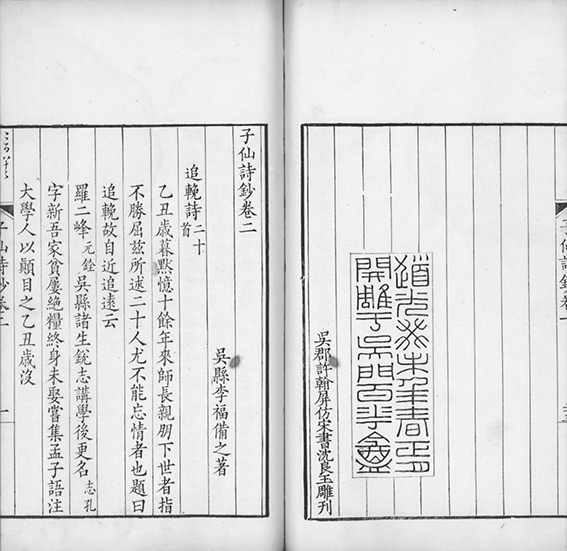 子仙詩鈔卷一
道光癸未年春正月
開雕于吳門百半龕
吳郡許翰屏仿宋書沈良玉雕刊
子仙詩鈔卷二
吳縣李福備之著
追輓詩二十首
乙丑歲暮默憶十餘年來師長親朋下世者指
不勝屈茲所述二十人尤不能忘情者也題曰
追輓故自近追遠云
羅二峰元銓吳縣諸生銳志講學後更名志孔
字新吾家貧屢絕糧終身未娶嘗集孟子語注
大學人以顛目之乙丑歲沒
子仙詩鈔卷二
一